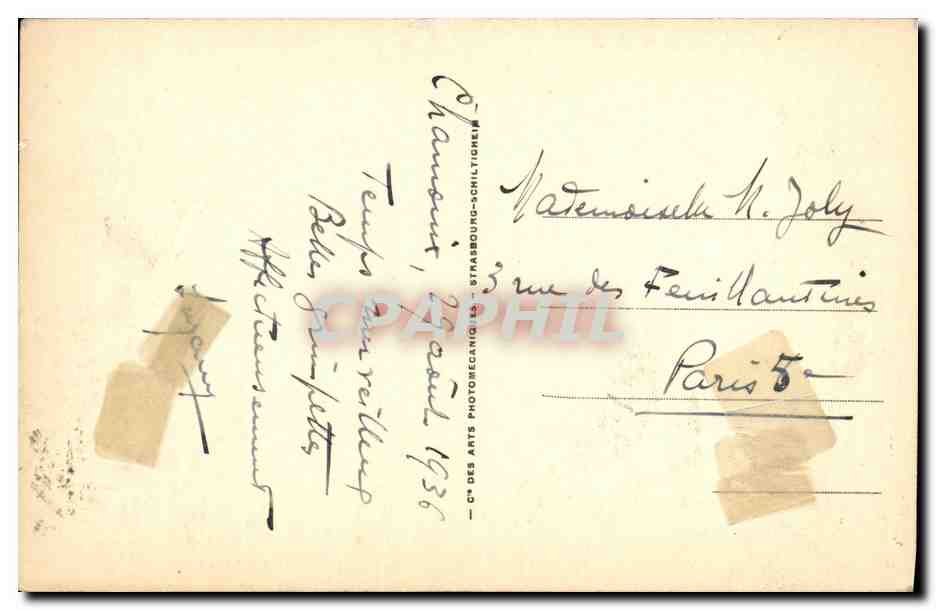 Chamonix, 29 août 1936
Temps merveilleux
Belles grimpettes
Affectueusement
— Cie DES ARTS PHOTOMECANIQUES — STRASBOURG-SCHILTIGHEIM
Mademoiselle M. Joly
3 rue des Feuillantines
Paris 5e
CPAPHIL